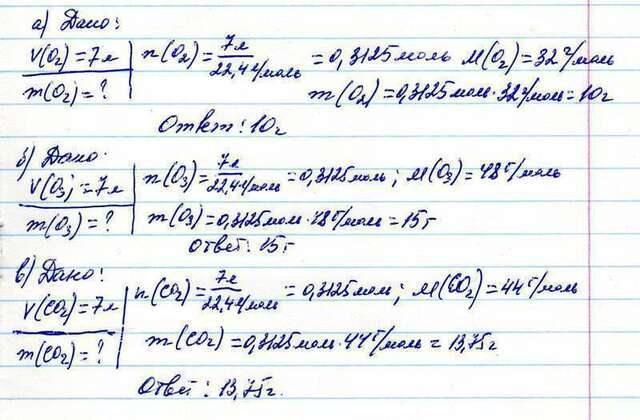 а) Дано:
V(O₂) = 7л | n(O₂) = 7л/22,4 г/моль = 0,3125 моль M(O₂) = 32 г/моль
m(O₂) = ? m(O₂) = 0,3125 моль · 32 г/моль = 10г
Ответ: 10г
б) Дано:
V(O₃) = 7л | n(O₃) = 7л/22,4 г/моль = 0,3125 моль; M(O₃) = 48 г/моль
m(O₃) = ? | m(O₃) = 0,3125 моль · 48 г/моль = 15г
Ответ: 15г
в) Дано:
V(CO₂) = 7л | n(CO₂) = 7л/22,4 г/моль = 0,3125 моль; M(CO₂) = 44 г/моль
m(CO₂) = ? | m(CO₂) = 0,3125 моль · 44 г/моль = 13,75г
Ответ: 13,75г.